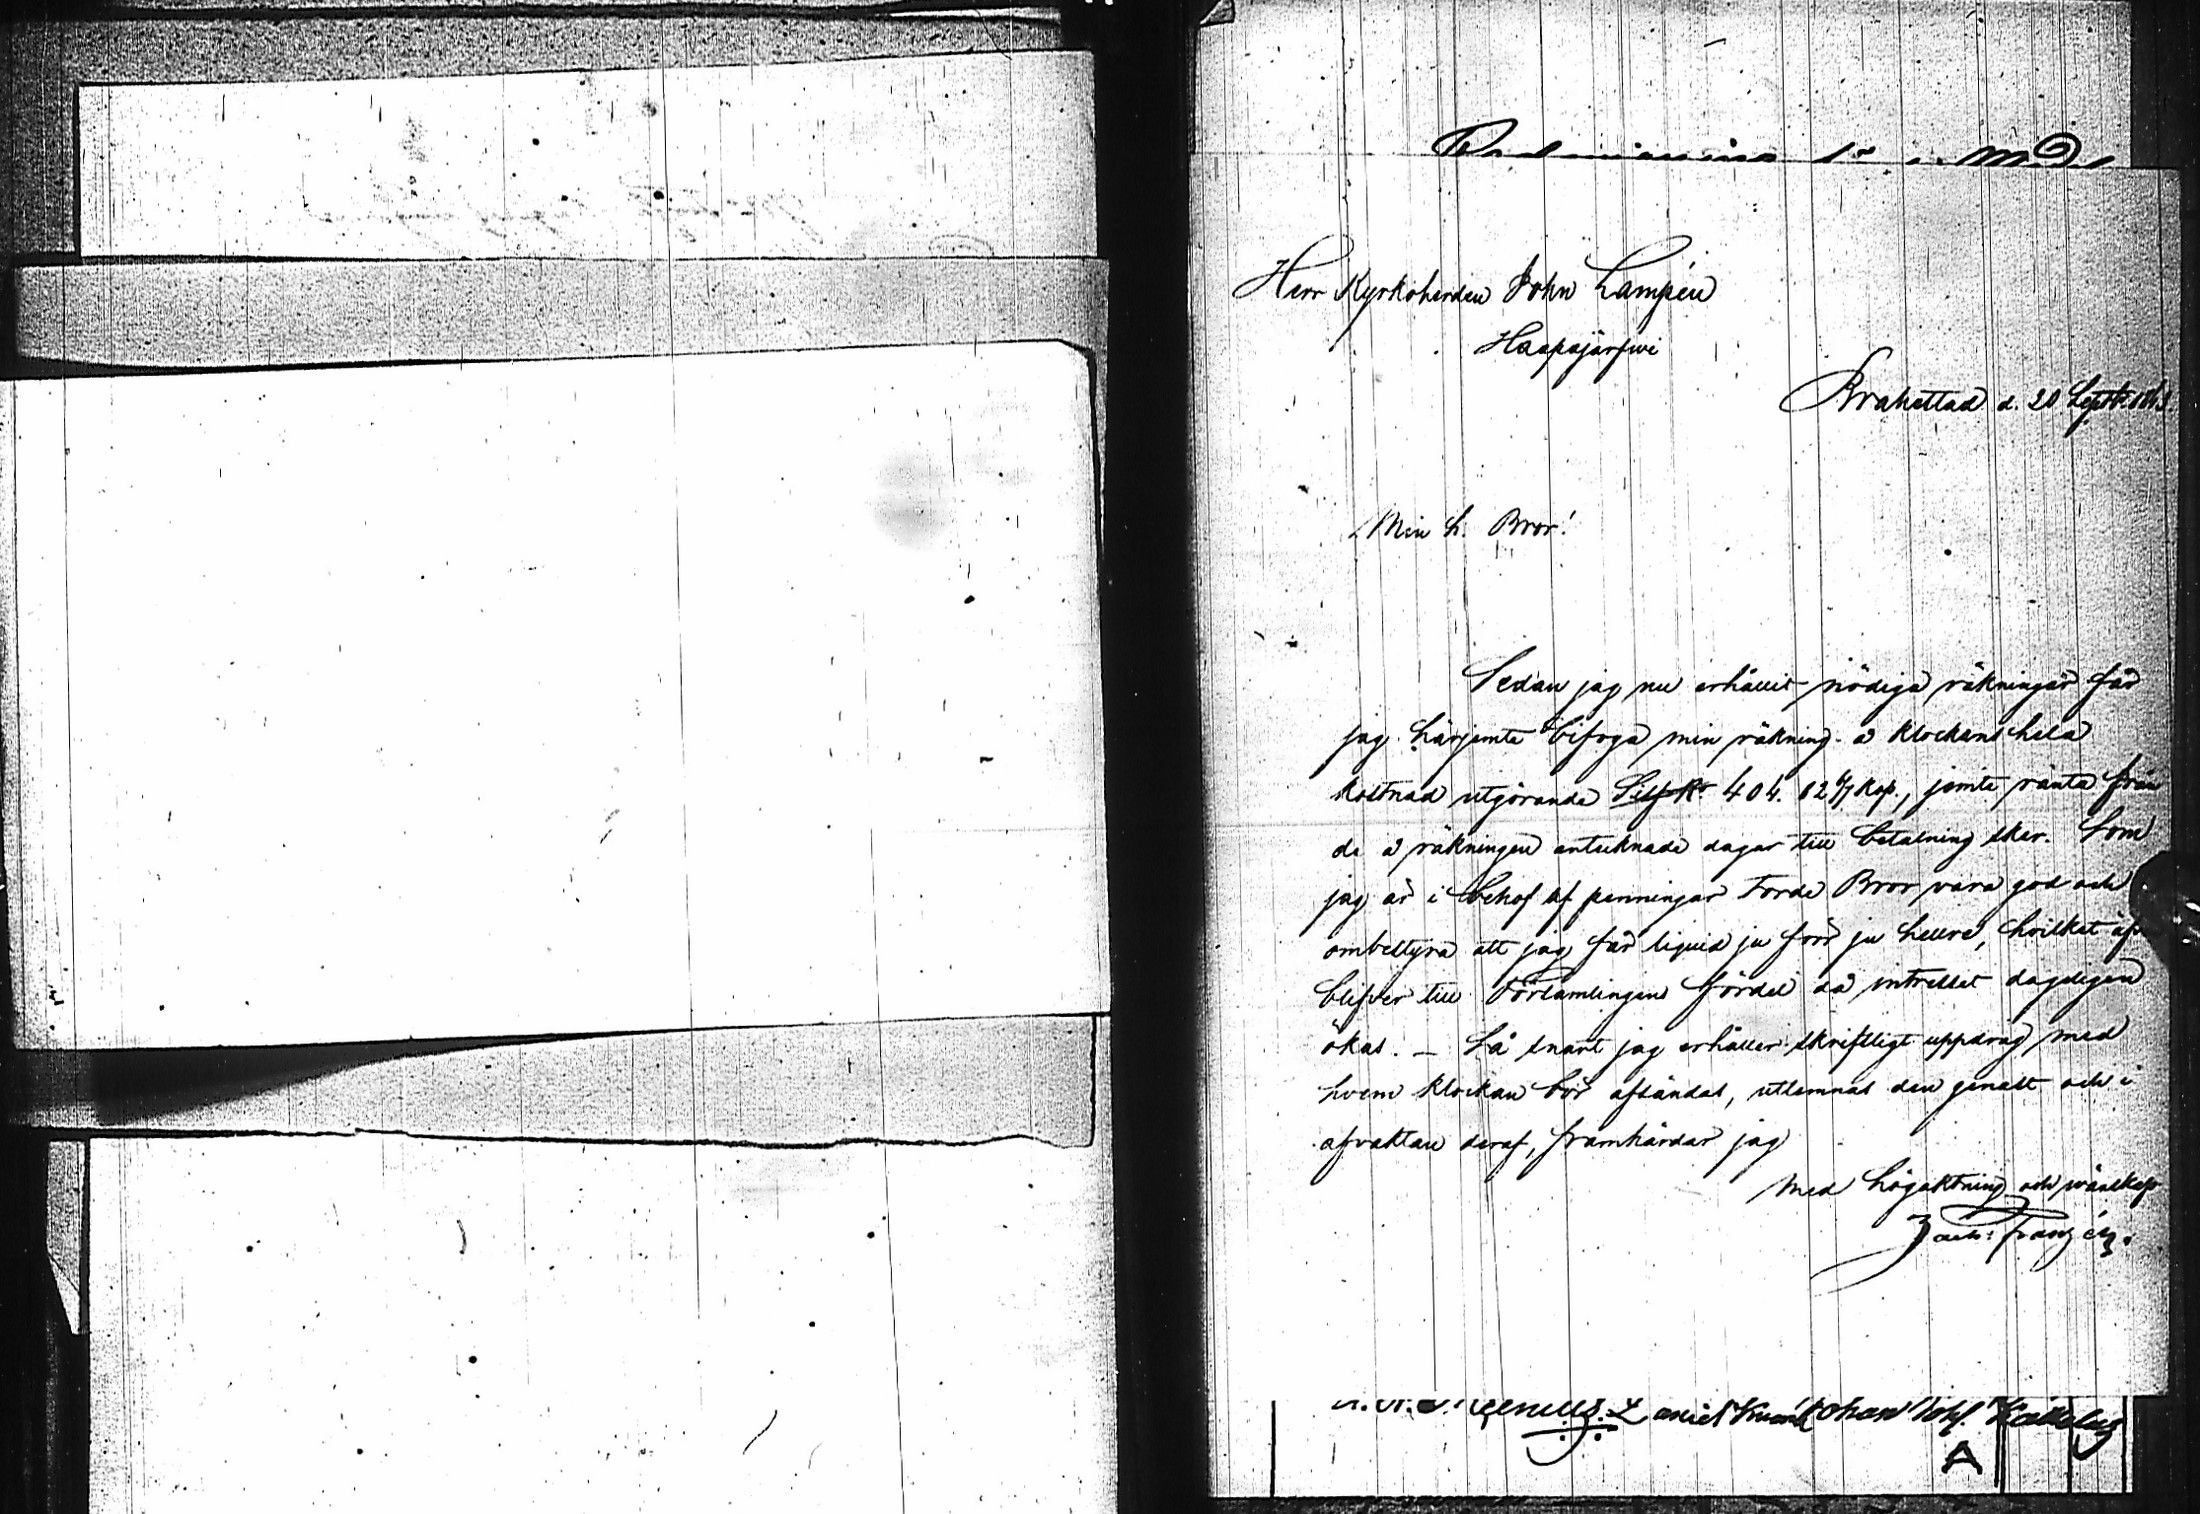 Herr Kyrkoherden John Lampén
Haapajärfwi
Brahestad d. 20 Septbr
Min h. Bror!
Sedan jag nu erhållit nödiga räkningar får
jag härjemte bifoga min räkning å klockans hela
kostnad utgörande Silfr 404. 82 4/7 kop., jemte ränta från
de å räkningen antecknade dagar till betalning sker. Som
jag är i behof af penningar torde Bror vara god och
ombestyra att jag får liquid ju förr ju hellre, hvilket
blifver till Församlingens fördel då intresset dageligen
ökas. – Så snart jag erhåller skriftligt uppdrag med
hvem klockan bör afsändas, utlemnas den genast och i
afvaktan deraf, framhärdar jag
med högaktning och wänskap
Zach: Franzén.
A